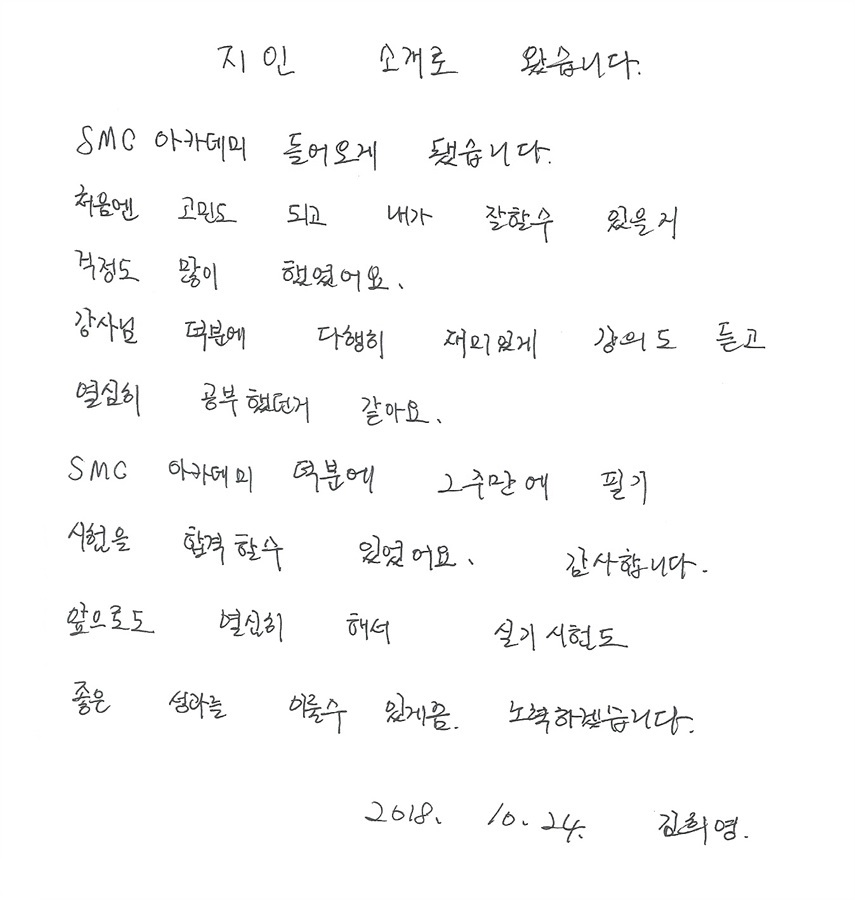 지인 소개로 왔습니다.
SMC 아카데미 들어오게 됐습니다.
처음엔 고민도 되고 내가 잘할수 있을지
걱정도 많이 했었어요.
강사님 덕분에 다행히 재미있게 강의도 듣고
열심히 공부했던거 같아요.
SMC 아카데미 덕분에 2주만에 필기
시험을 합격할수 있었어요. 감사합니다.
앞으로도 열심히 해서 실기시험도
좋은 성과를 이룰수 있게끔. 노력하겠습니다.
2018. 10. 24. 김희영.